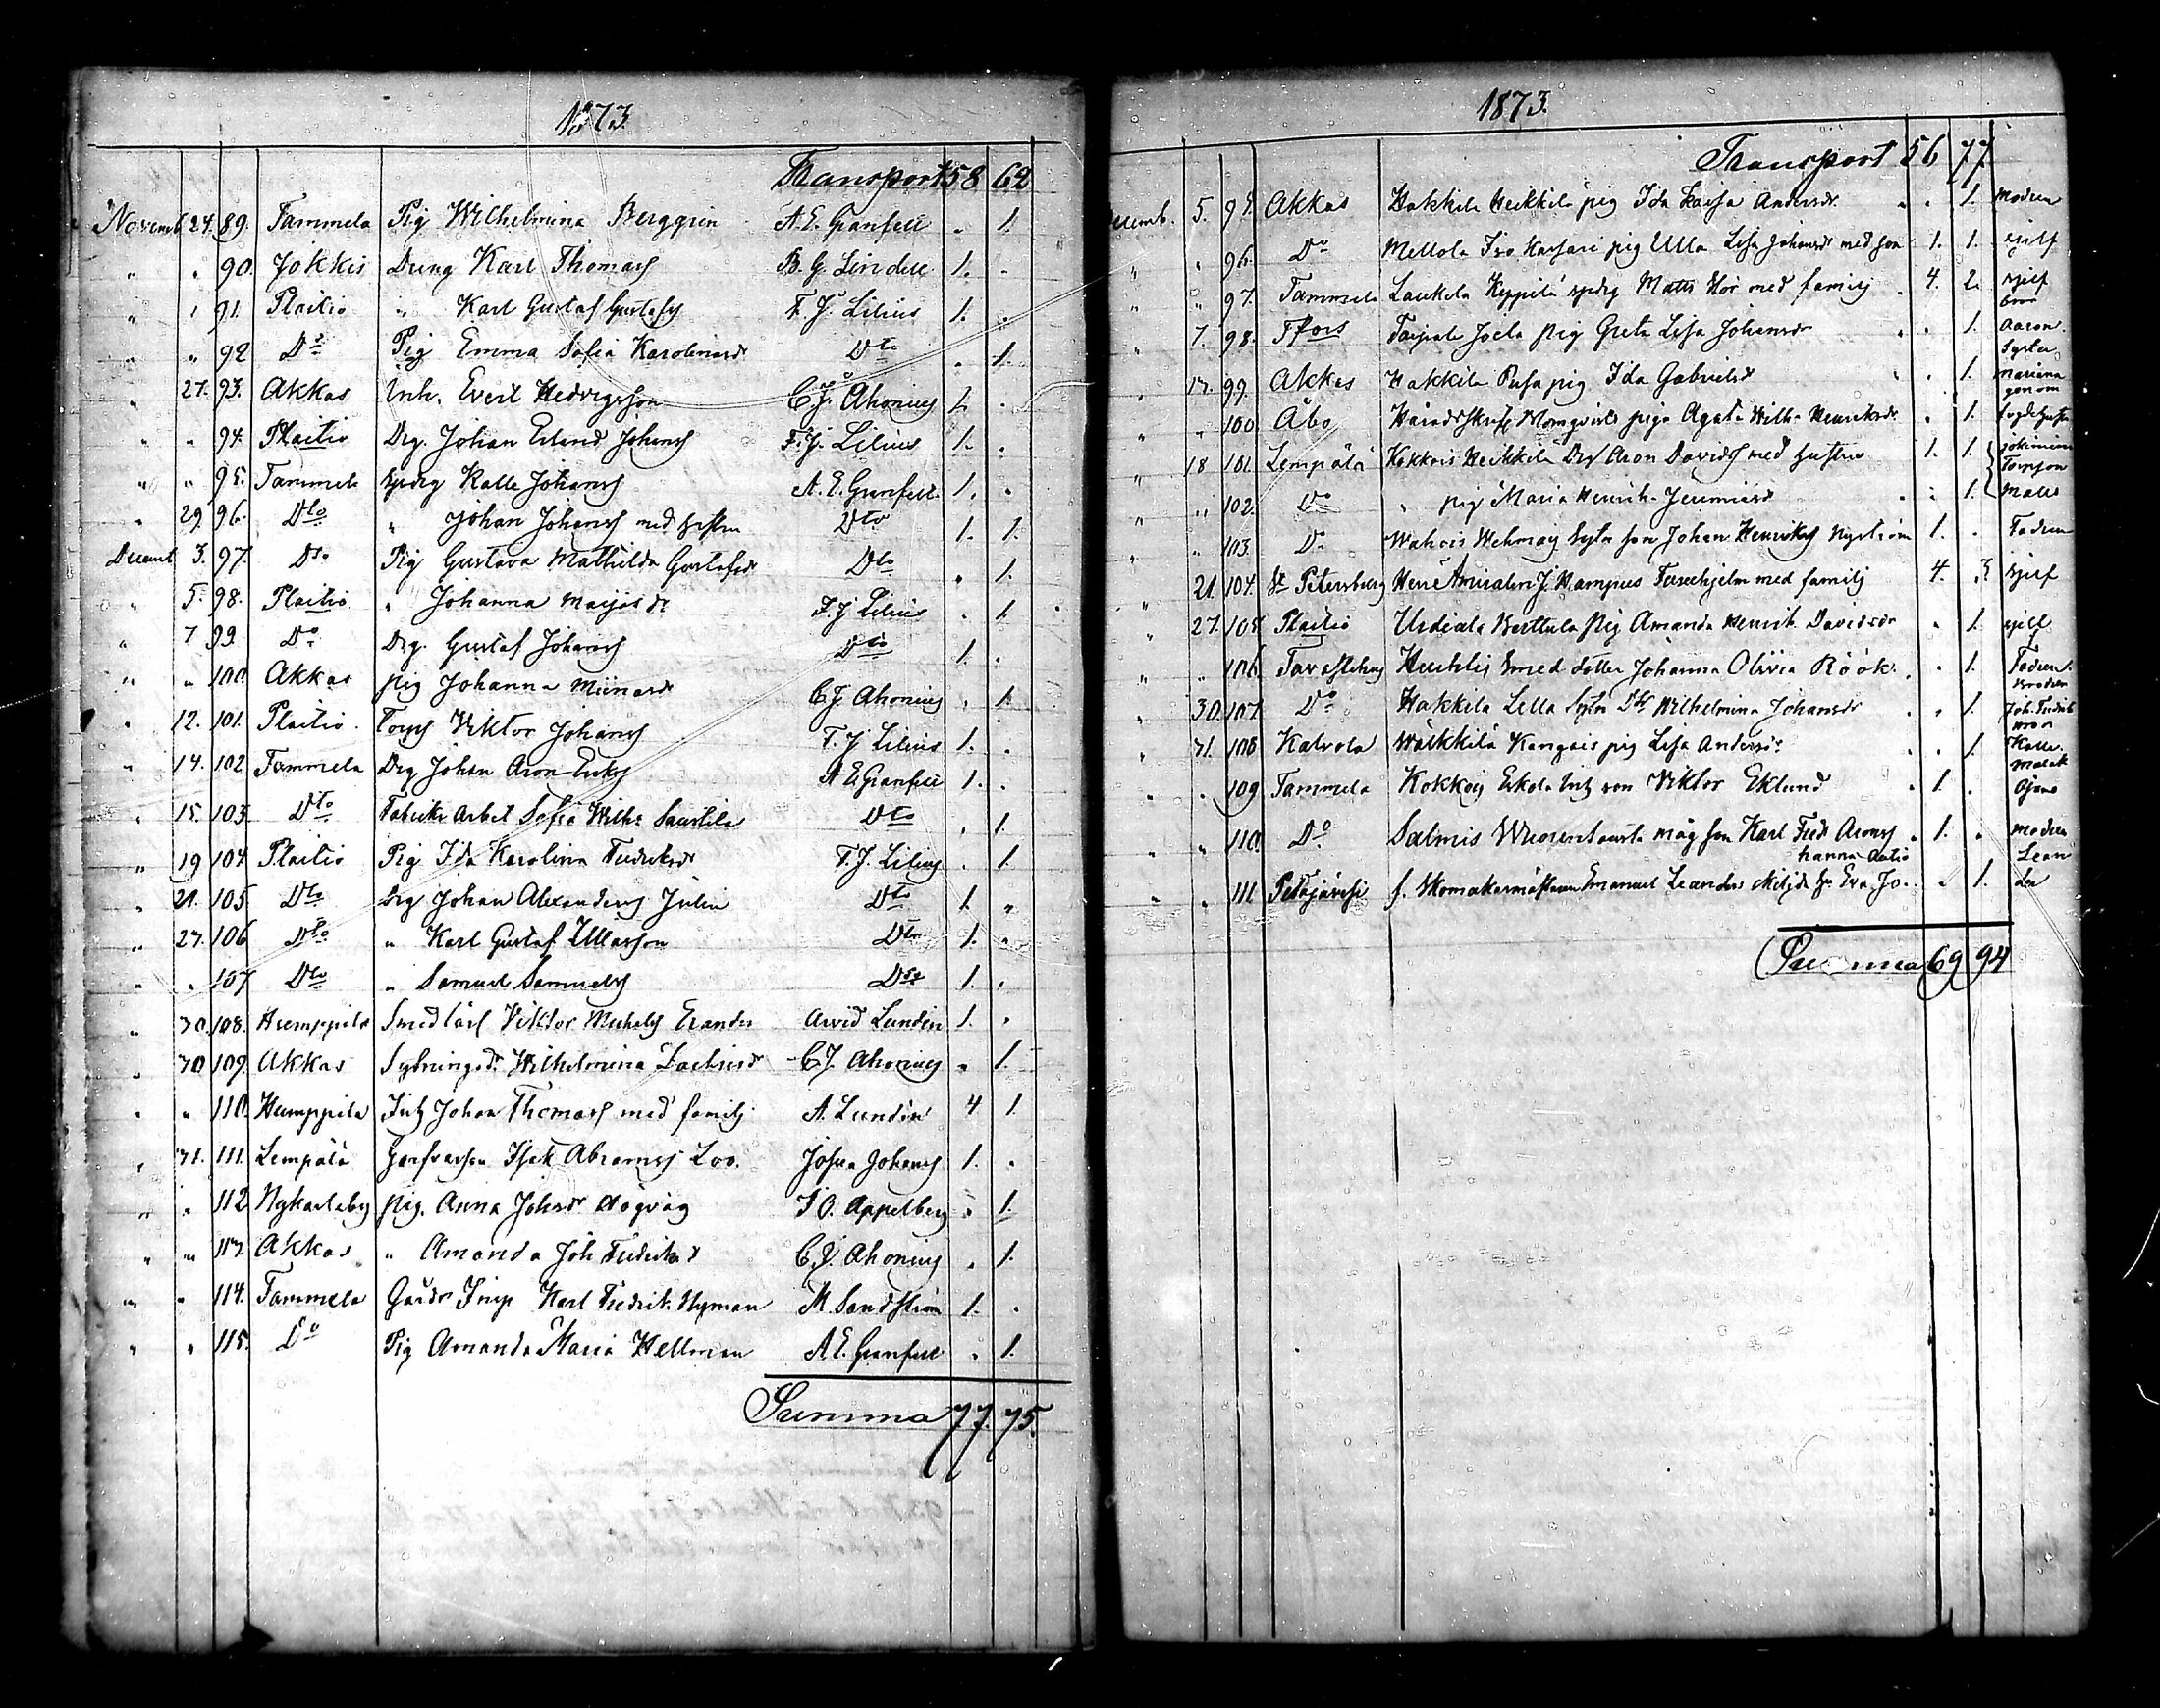 1873.
Transport 58 62
Novemb 24. 89. Tammela Pig Wilhelmina Berggrin A. E. Granfelt " 1.
" " 90. Jokkis Dräng Karl Thomass B. G. Lindell 1. "
" " 91. Plaitis " Karl Gustaf Gustafss F. J. Lilius 1. .
" " 92 Do Pig Emma Sofia Karolinasdr Dto . 1.
" 27. 93. Akkas Inh. Evert Hedvigsson C. J. Ahonius 1. .
" " 94. Plaitis Drg. Johan Erland Johanss F. J. Lilius 1. .
" " 95. Tammela Spdrg Kalle Johanss A. E. Granfelt 1. .
" 29. 96. Dto " Johan Johanss med hustru Dto 1. 1.
Decemb 3. 97. Dto Pig Gustava Mathilda Gustafsdr Dto . 1.
" 5. 98. Plaitis " Johanna Maijasdr F. J. Lilius . 1.
" 7 99. Do Drg. Gustaf Johanss Dto 1. .
" " 100. Akkas pig Johanna Miinasdr C. J. Ahonius . 1.
" 12. 101. Plaitis Torps Viktor Johanss F. J. Lilius 1. .
" 14. 102 Tammela Drg Johan Aron Erikss A E Granfelt 1. .
" 15. 103 Dto Fabriks Arbet Sofia Wilh. Saustila Dto . 1.
" 19 104. Plaitis Pig Ida Karolina Fredriksdr F. J. Lilius . 1.
" 21. 105 Dto Drg Johan Alexanders Julin Dto 1. "
" 27. 106 Dto " Karl Gustaf Ullasson Dto 1. "
" " 107 Dto " Samuel Samuelss Dto 1. .
" 30. 108. Humppila Smedlärl Viktor Michelss Erander Arvid Lundén 1. .
" 30 109. Akkas Sytningsdr Wilhelmina Zachrisdr C. J. Ahonius " 1.
" " 110. Humppila Inh Johan Thomass med familj A. Lundén 4 1.
" 31. 111. Lempälä Isak Abramss Loo. Josua Johanss 1. .
" " 112 Nykarleby pig. Anna Johsdr Högväg J O. Appelberg " 1.
" " 113. Akkas " Amanda Joh Fredriksd C. J. Ahonius . 1.
" " 114. Tammela Gårds Insp Karl Fredrik Nyman M Sandström 1. .
" " 115. Do Pig Amanda Maria Hellman A E. Granfelt . 1.
Summa 77. 75.
1873.
Transport 56 77
Decemb. 5. 95. Akkas Hakkila Heikkila pig Ida Kaisa Andersdr. " . 1. Modren
" " 96. Do Mellola Iso Kassari pig Ulla Lisa Johansdr med son 1. 1. sjelf
" " 97. Tammela Laukela Keppilä spdrg Matts Hör med familj . 4. 2. sjelf
7. 98. Tfors Taipale Joela pig Greta Lisa Johansdr . . 1. Aaron
Syster
" 17. 99. Akkas Hakkila pig Ida Gabrielsd . . 1. Mariana
genom
" " 100. Åbo Häradsskrif. Blomqvists piga Agata Wilh. Henriksdr . 1.
" 18 101. Lempälä Kokkois Heikkila Drg Aron Davidss med hustru 1. 1.
" " 102. Do " pig Maria Henrik. Jeremiasd . . 1. Matts
" " 103. Do Wahois Wehmaij Sytn son Johan Henrikss Nyström 1. . Fadren
" 21. 104. St Petersburg Herr Amiralen J. Hampus Furuhjelm med familj 4. 3. sjelf
" 27. 105 Plaitis Urdiala Perttula pig Amanda Henrik. Davidsdr . 1. sjelf
" " 106. Tavastehus Huhtis Smed dotter Johanna Olivia Röök. . . 1. Fadren
Brodren
" 30. 107. Do Hakkila Lella Sytn Dtr Wilhelmina Johansdr . . 1. Joh. Fredrik
" 31. 108 Kalvola Wälkkilä Kangais pig Lisa Andersdr . 1. Kalle
" " 109 Tammela Kokkois Eskola Inh son Viktor Eklund . 1. .
" " 110. Do Salmis Wuorentausta måg son Karl Fredr Aronss . 1. . Modren
Lena
hanna Antis
" " 111. Petäjävesi f. Skomakaremästaren Emanuel Leanders skiljda hu Eva Jo- . . 1.
Summa 69 94